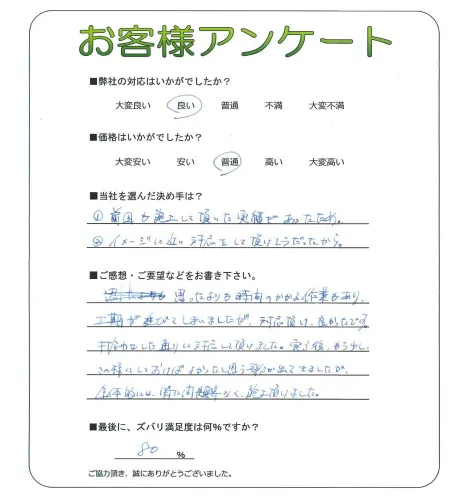 お客様アンケート
■弊社の対応はいかがでしたか？
大変良い 良い 普通 不満 大変不満
■価格はいかがでしたか？
大変安い 安い 普通 高い 大変高い
■当社を選んだ決め手は？
① 前回も施工して頂いた実績があったため。
② イメージに近い対応をして頂けそうだったから。
■ご感想・ご要望などをお書き下さい。
思ったよりも時間のかかる作業もあり、
工期が延びてしまいましたが、対応頂け、良かったです。
した通りに対応して頂けました。完了後、もう少し
この様にしておけばよかったと思う部分が出てきましたが、
全体的には、特に問題なく、施工頂けました。
■最後に、ズバリ満足度は何％ですか？
80 ％
ご協力頂き、誠にありがとうございました。